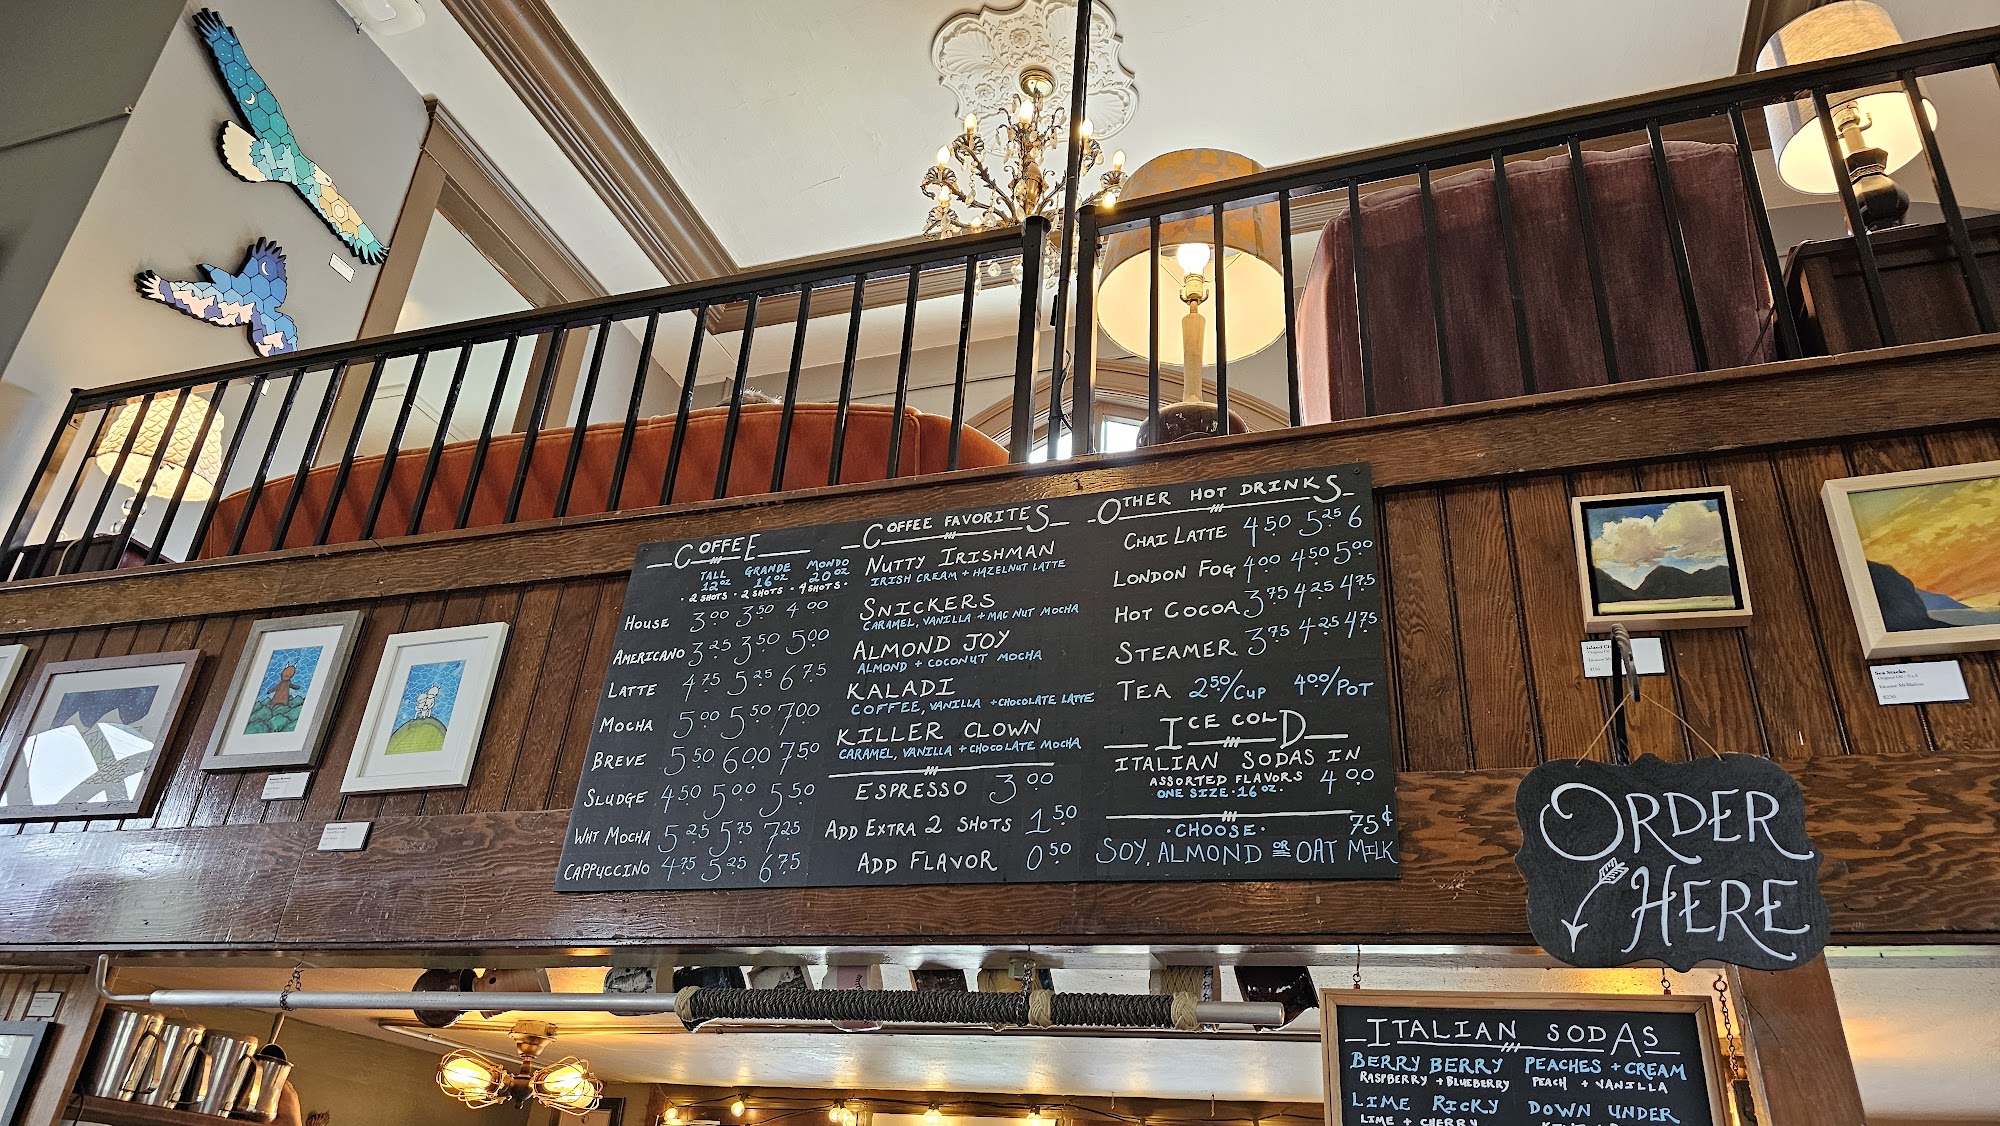 COFFEE
TALL GRANDE MONDO
12oz 16oz 20oz
· 2 SHOTS · 2 SHOTS · 4 SHOTS ·
HOUSE 3.00 3.50 4.00
AMERICANO 3.25 3.50 5.00
LATTE 4.75 5.25 6.75
MOCHA 5.00 5.50 7.00
BREVE 5.50 6.00 7.50
SLUDGE 4.50 5.00 5.50
WHT MOCHA 5.25 5.75 7.25
CAPPUCCINO 4.75 5.25 6.75
COFFEE FAVORITES
NUTTY IRISHMAN
IRISH CREAM + HAZELNUT LATTE
SNICKERS
CARAMEL, VANILLA + MAC NUT MOCHA
ALMOND JOY
ALMOND + COCONUT MOCHA
KALADI
COFFEE, VANILLA + CHOCOLATE LATTE
KILLER CLOWN
CARAMEL, VANILLA + CHOCOLATE MOCHA
ESPRESSO 3.00
ADD EXTRA 2 SHOTS 1.50
ADD FLAVOR 0.50
OTHER HOT DRINKS
CHAI LATTE 4.50 5.25 6
LONDON FOG 4.00 4.50 5.00
HOT COCOA 3.75 4.25 4.75
STEAMER 3.75 4.25 4.75
TEA 2.50/CUP 4.00/POT
ICE COLD
ITALIAN SODAS IN
ASSORTED FLAVORS 4.00
ONE SIZE · 16 oz.
· CHOOSE · 75¢
SOY, ALMOND OR OAT MILK
Sea Stacks
ORDER
HERE
ITALIAN SODAS
BERRY BERRY PEACHES + CREAM
RASPBERRY + BLUEBERRY PEACH + VANILLA
LIME RICKY DOWN UNDER
LIME + CHERRY